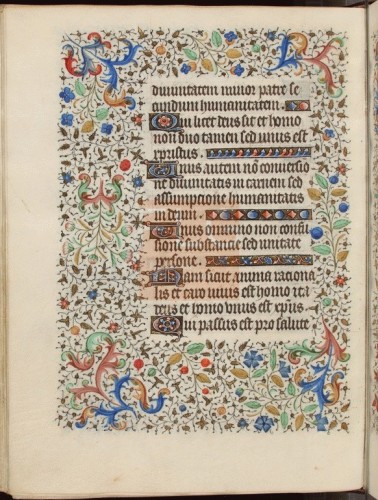 diuinitatem minor patre se
cundum humanitatem.
Qui licet deus sit et homo
non duo tamen sed unus est
xpistus.
Unus autem nō conuersio
ne diuinitatis in carnem sed
assumpcione humanitatis
in deum.
Unus omnino non confu
sione substancie sed unitate
persone.
Nam sicut anima raciona
lis et caro unus est homo ita
deus et homo unus est xp̄us.
Qui passus est pro salute